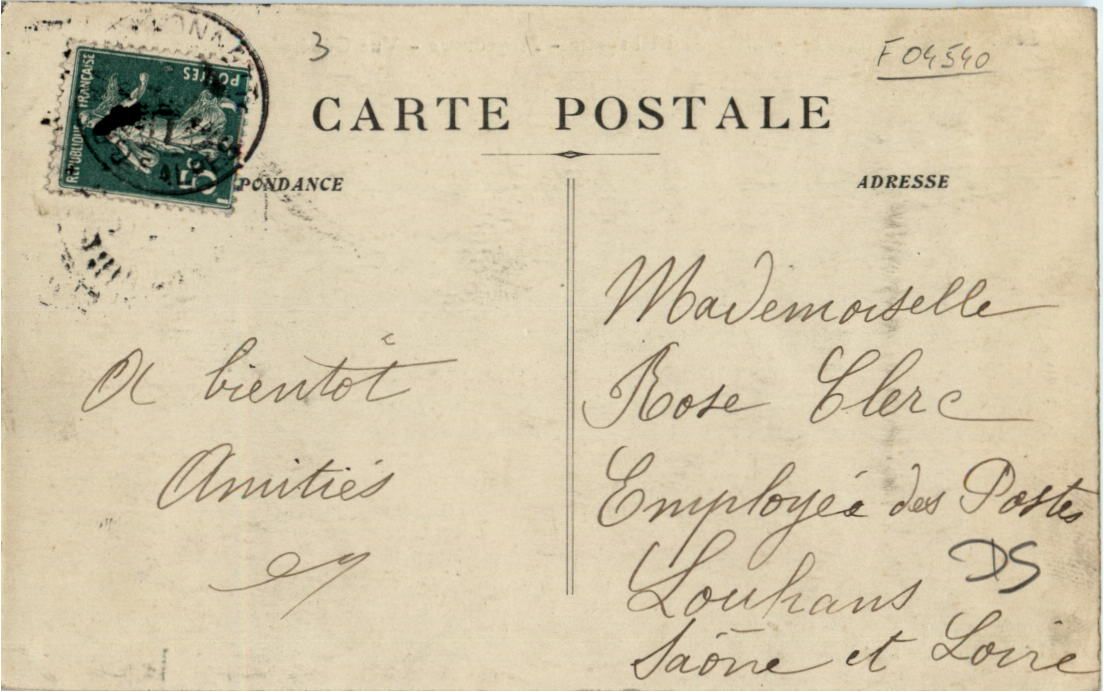 3
F 04540
CARTE POSTALE
PONDANCE
ADRESSE
RÉPUBLIQUE FRANÇAISE
POSTES
5
Mademoiselle
Rose Clerc
Employée des Postes
Louhans
Saône et Loire
DS
A bientôt
Amitiés